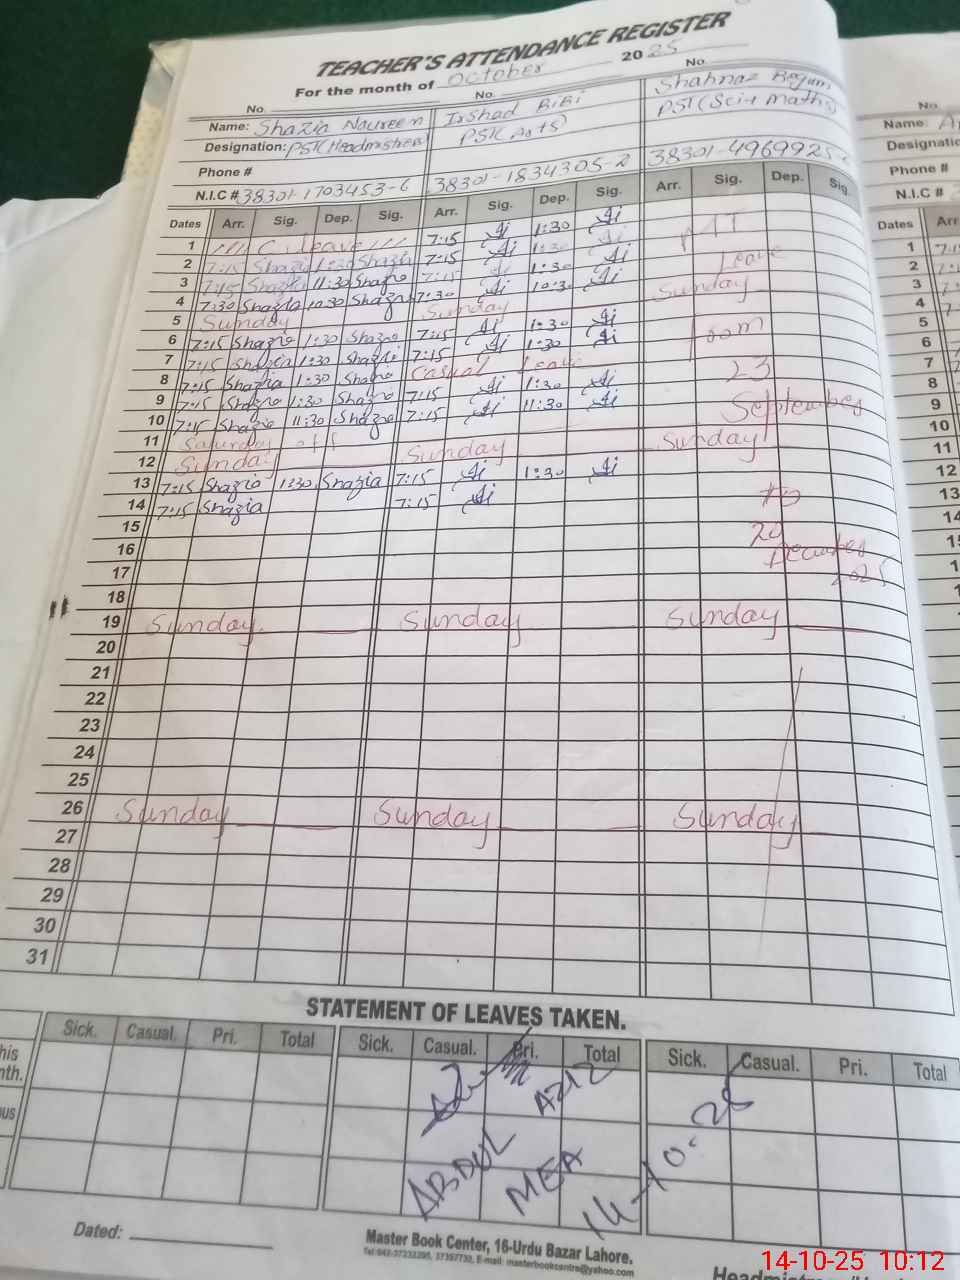 TEACHER'S ATTENDANCE REGISTER
For the month of October 2025
No. No. No.
Name: Shazia Naureen Irshad BiBi Shahnaz Begum
Designation: PST(Headmistress) PST(Arts) PST(Sci+Maths)
Phone #
N.I.C # 38301-1703453-6 38301-1834305-2 38301-4969925-
Dates Arr. Sig. Dep. Sig. Arr. Sig. Dep. Sig. Arr. Sig. Dep. Sig.
1 C. leave 7:15 1:30
2 7:15 Shazia 1:30 Shazia 7:15 1:30
3 7:15 Shazia 11:30 Shazia 7:15 1:30 Leave
4 7:30 Shazia 10:30 Shazia 7:30 10:30 Sunday
5 Sunday Sunday
6 7:15 Shazia 1:30 Shazia 7:15 1:30 from
7 7:15 Shazia 1:30 Shazia 7:15 1:30
8 7:15 Shazia 1:30 Shazia Casual leave 23
9 7:15 Shazia 1:30 Shazia 7:15 1:30
10 7:15 Shazia 11:30 Shazia 7:15 11:30 September
11 Saturday off
12 Sunday Sunday Sunday
13 7:15 Shazia 1:30 Shazia 7:15 1:30
14 7:15 Shazia 7:15 to
15
16 20
17 December
18 2025
19 Sunday Sunday Sunday
20
21
22
23
24
25
26 Sunday Sunday Sunday
27
28
29
30
31
STATEMENT OF LEAVES TAKEN.
Sick. Casual. Pri. Total Sick. Casual. Pri. Total Sick. Casual. Pri. Total
ABDUL AZIZ
MEA
14-10-25
Dated:
Master Book Center, 16-Urdu Bazar Lahore.
Tel:042-37232295, 37357730, E-mail: masterbookcentre@yahoo.com
No.
Name:
Designatio
Phone #
N.I.C #
Dates Arr
1
2
3
4
5
6
7
8
9
10
11
12
13
14
15
14-10-25 10:12